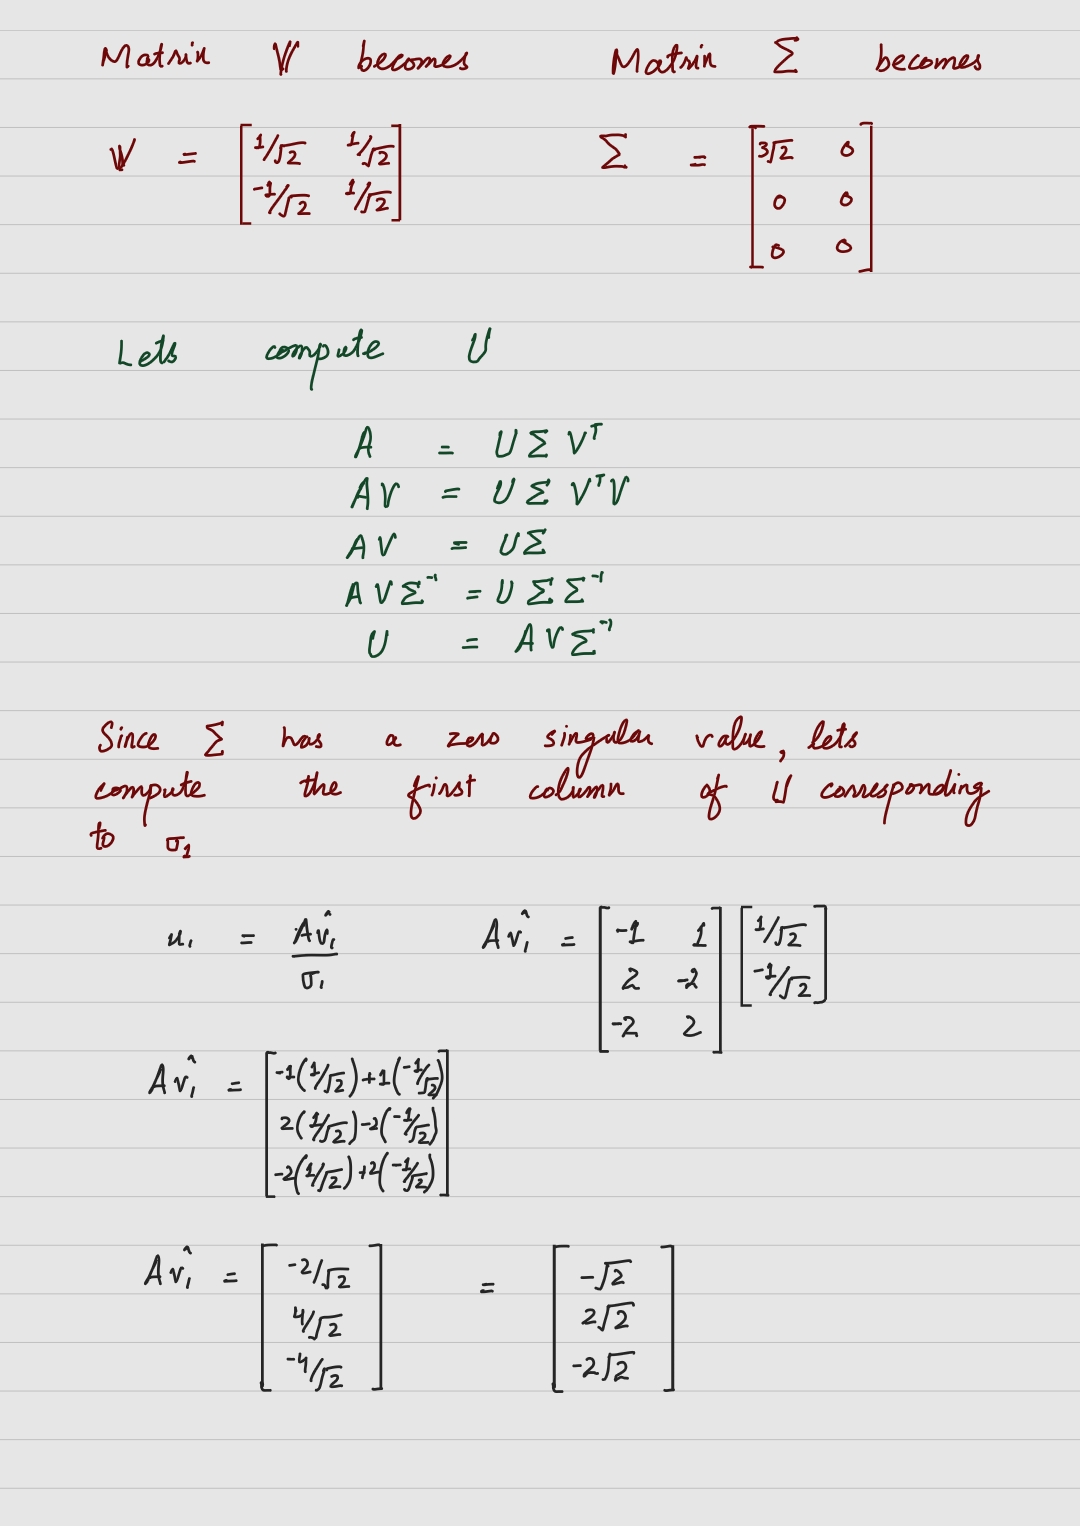 Matrix V becomes Matrix Σ becomes
V = [1/√2 1/√2 Σ = [3√2 0
-1/√2 1/√2] 0 0
0 0]
Lets compute U
A = U Σ Vᵀ
A V = U Σ Vᵀ V
A V = U Σ
A V Σ⁻¹ = U Σ Σ⁻¹
U = A V Σ⁻¹
Since Σ has a zero singular value, lets
compute the first column of U corresponding
to σ₁
u₁ = Av̂₁ / σ₁ Av̂₁ = [-1 1 [1/√2
2 -2 -1/√2]
-2 2]
Av̂₁ = [-1(1/√2)+1(-1/√2)
2(1/√2)-2(-1/√2)
-2(1/√2)+2(-1/√2)]
Av̂₁ = [-2/√2 = [-√2
4/√2 2√2
-4/√2] -2√2]